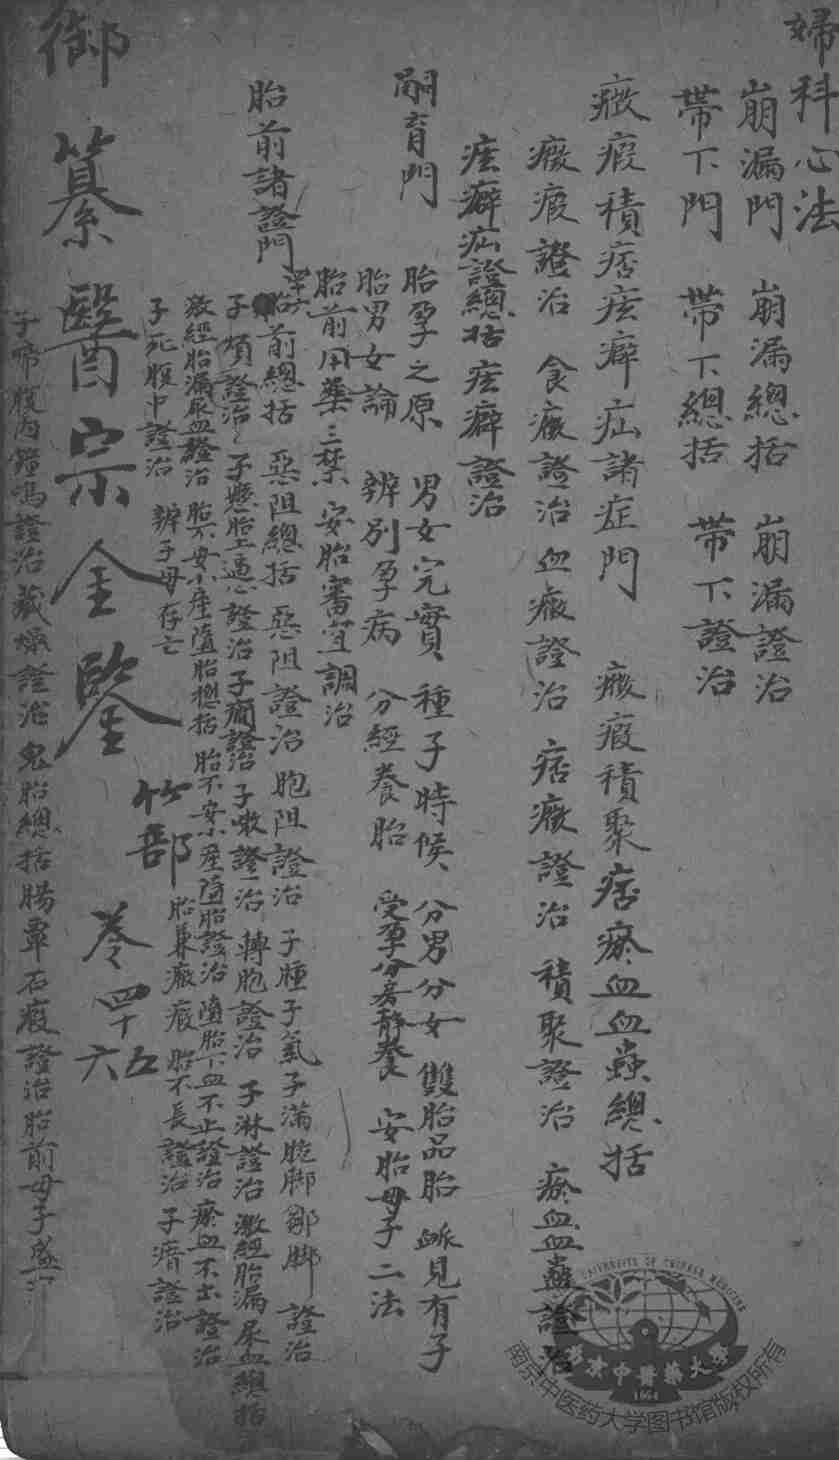 婦科心法
崩漏門 崩漏總括 崩漏證治
帶下門 帶下總括 帶下證治
癥瘕積痞痃癖疝諸症門 癥瘕積聚痞瘀血血蠱總括
癥瘕證治 食癥證治 血癥證治 痞癥證治 積聚證治 瘀血血蠱證治
痃癖疝證總括 痃癖證治
嗣育門 胎孕之原 男女完實 種子時候 分男分女 雙胎品胎 脈見有子
胎男女論 辨別孕病 分經養胎 受孕分房靜養 安胎母子二法
胎前用藥三禁 安胎審宜調治
胎前諸證門
胎前總括 惡阻總括 惡阻證治 胞阻證治 子腫子氣子滿脆腳皺腳證治
子煩證治 子懸胎上逼心證治 子癇證治 子嗽證治 轉胞證治 子淋證治 激經胎漏尿血總括
激經胎漏尿血證治 胎不安小產墮胎總括 胎不安小產墮胎證治 墮胎下血不止證治 瘀血不出證治
子死腹中證治 辨子母存亡 胎兼癥瘕 胎不長證治 子瘖證治
御纂醫宗金鑒 竹部 卷四十五六
子啼腹內鐘鳴證治 藏燥證治 鬼胎總括 腸覃石瘕證治 胎前母子盛
南京中醫藥大學
UNIVERSITY OF CHINESE MEDICINE
1954
南京中医药大学图书馆版权所有